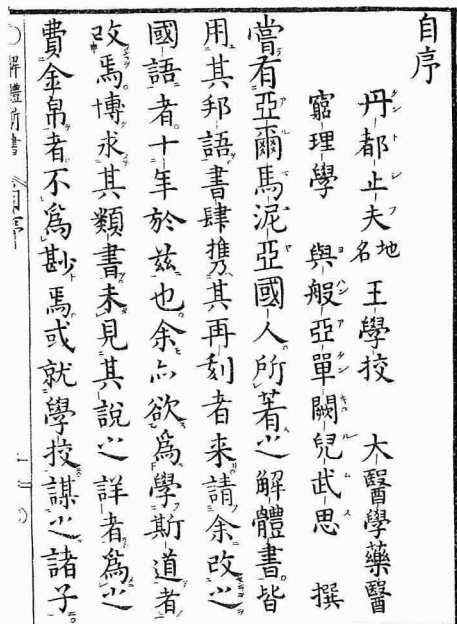 自序
丹都止夫地名 王學挍 大醫學藥醫
窮理學 與般亞單闕兒武思 撰
嘗有亞爾馬泥亞國人所著之解體書皆
用其邦語書肆携其再刻者来請余改之
國語者十年於兹也余亦欲爲學斯道者
改焉博求其類書未見其說之詳者爲之
費金帛者不爲尠焉或就學挍謀之諸子
解體新書